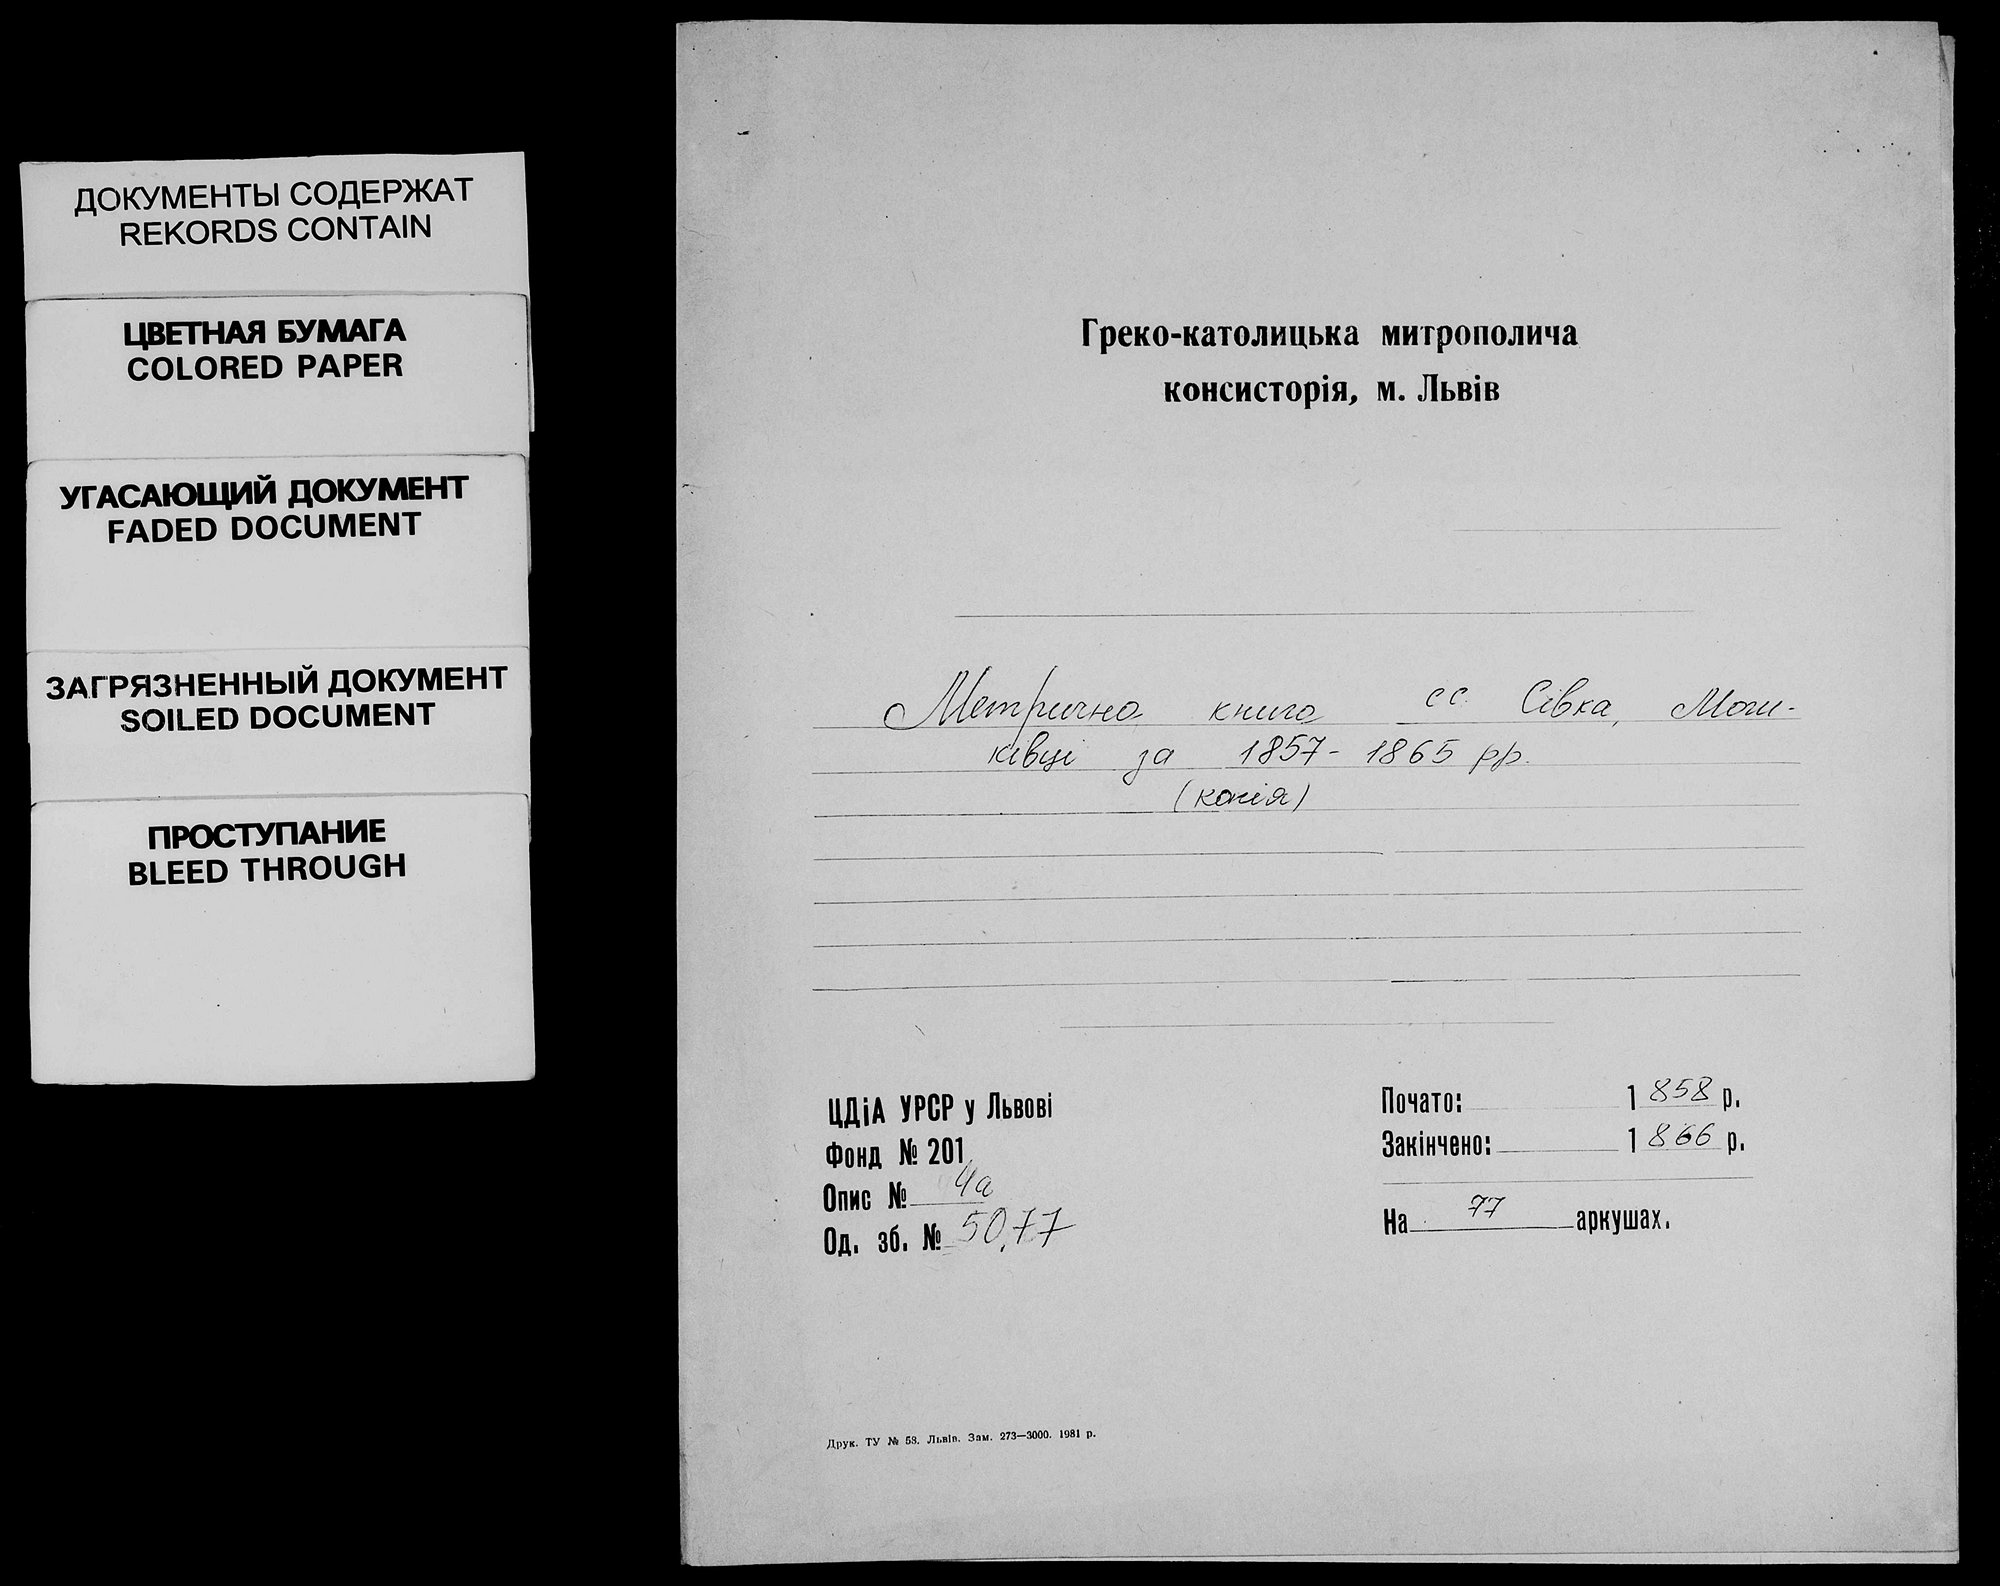 ДОКУМЕНТЫ СОДЕРЖАТ
REKORDS CONTAIN
ЦВЕТНАЯ БУМАГА
COLORED PAPER
УГАСАЮЩИЙ ДОКУМЕНТ
FADED DOCUMENT
ЗАГРЯЗНЕННЫЙ ДОКУМЕНТ
SOILED DOCUMENT
ПРОСТУПАНИЕ
BLEED THROUGH
Греко-католицька митрополича
консисторія, м. Львів
Метрична книга сс. Сівка, Мош-
ківці за 1857-1865 рр.
(копія)
ЦДіА УРСР у Львові
Фонд № 201
Опис № 4а
Од. зб. № 5077
Почато: 1858 р.
Закінчено: 1866 р.
На 77 аркушах.
Друк. ТУ № 58. Львів. Зам. 273—3000. 1981 р.